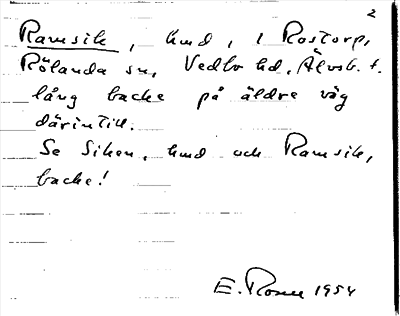 2
Ramsik, hmd, i Rostorp,
Rölanda sn, Vedbo hd, Älvsb. l.
lång backe på äldre väg
därintill.
Se Siken, hmd och Ramsik,
backe!
E. Rosell 1954